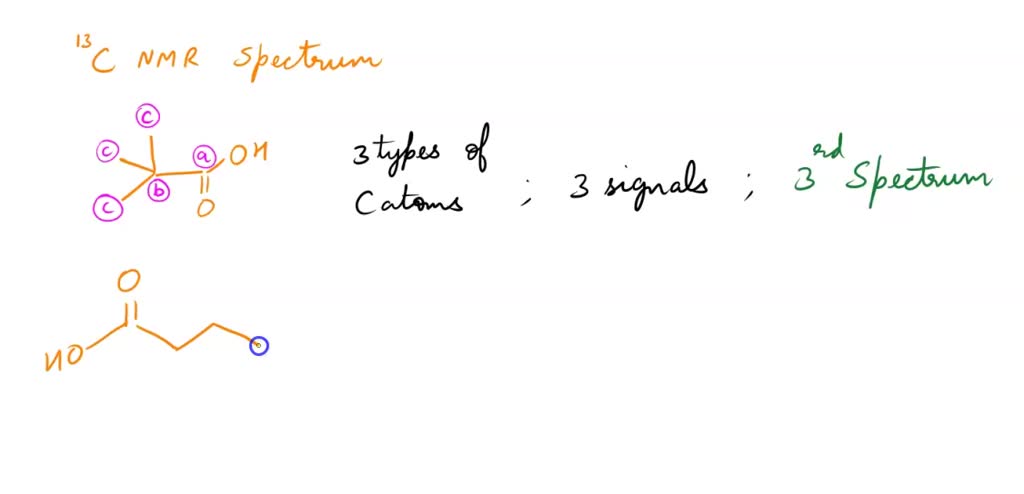 13C NMR Spectrum
c
c
a OH
b
c
O
3 types of
C atoms ; 3 signals ; 3rd Spectrum
O
HO